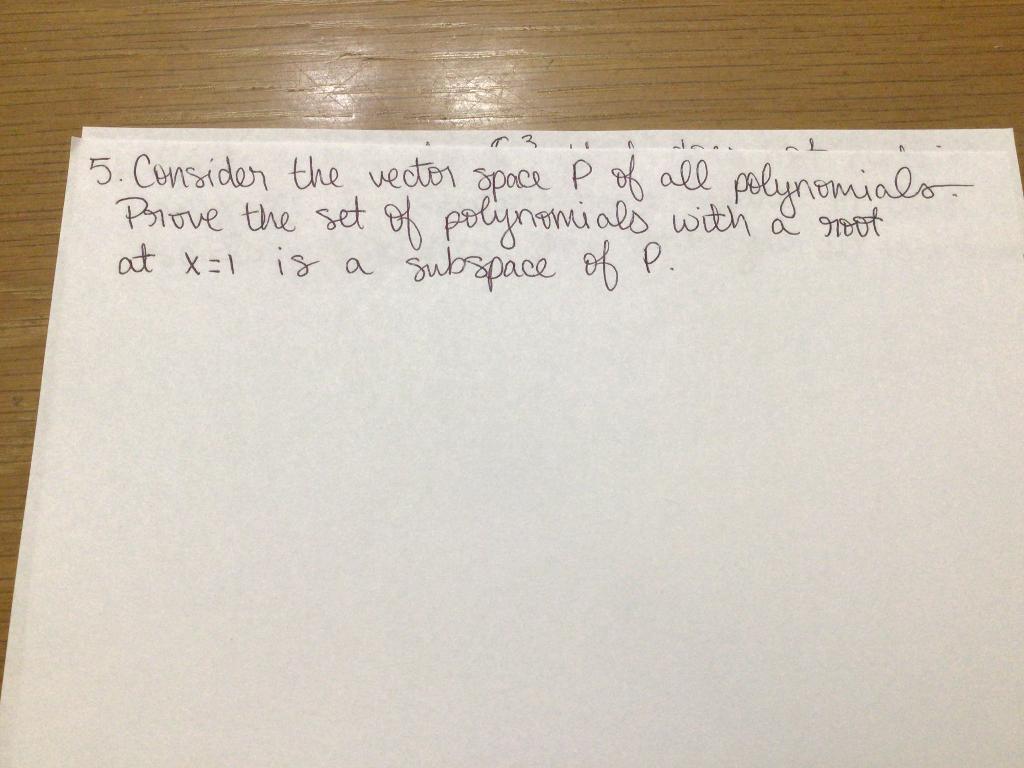 5. Consider the vector space P of all polynomials.
Prove the set of polynomials with a root
at x=1 is a subspace of P.